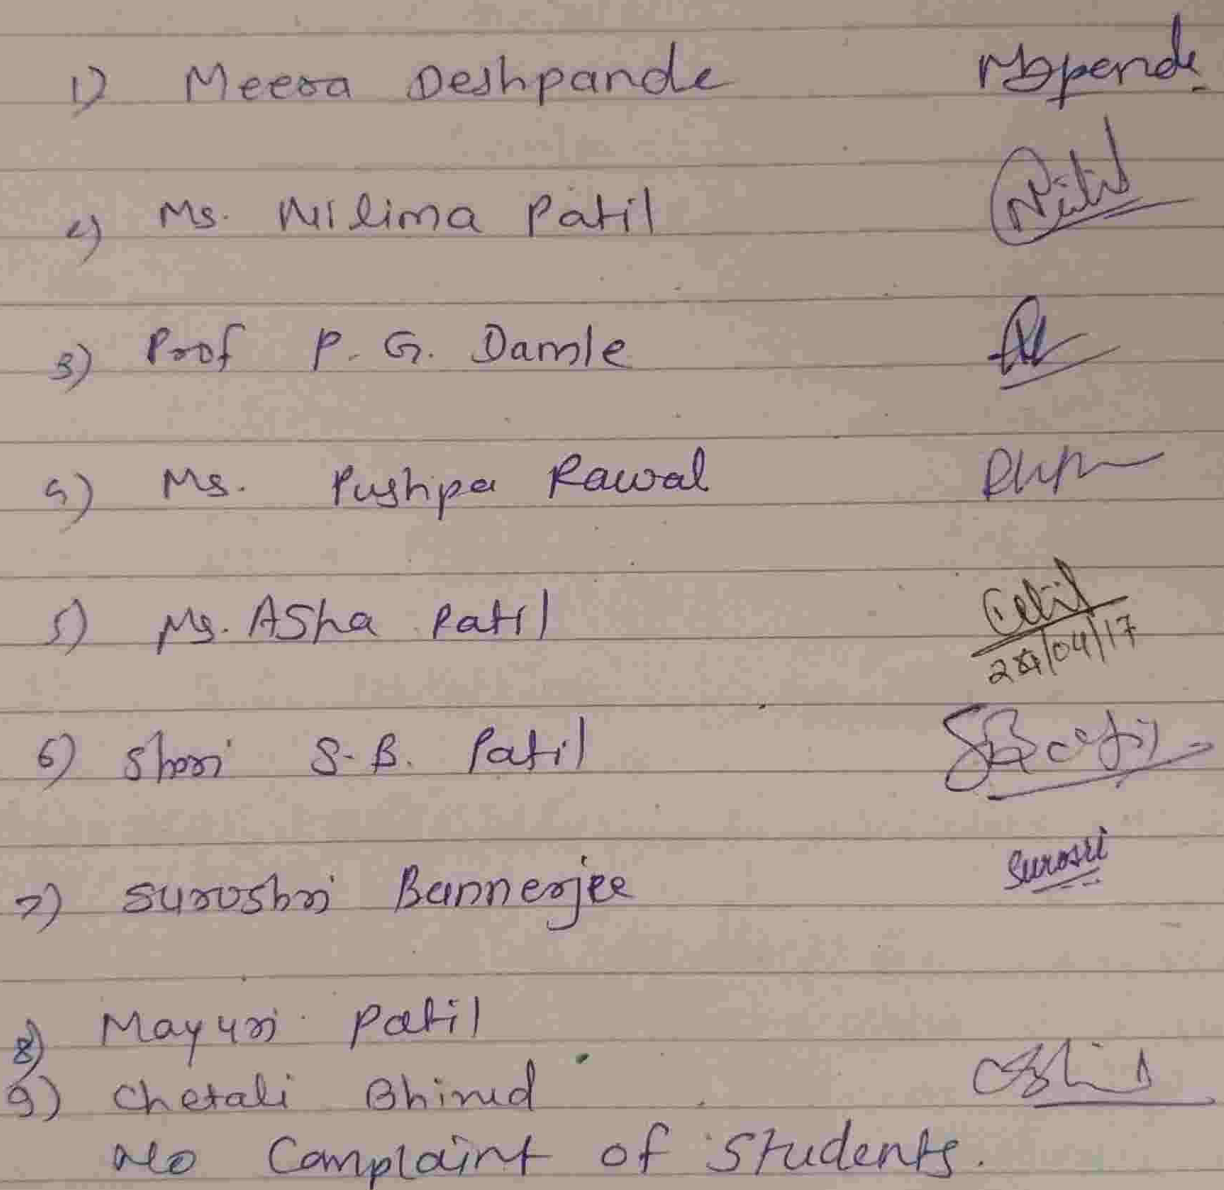 1) Meera Deshpande
2) Ms. Nilima Patil
3) Prof P. G. Damle
4) Ms. Pushpa Rawal
5) Ms. Asha Patil
24/04/17
6) Shri S. B. Patil
7) Surushri Bannerjee Surosri
8) Mayuri Patil
9) Chetali Bhirud
No Complaint of Students.